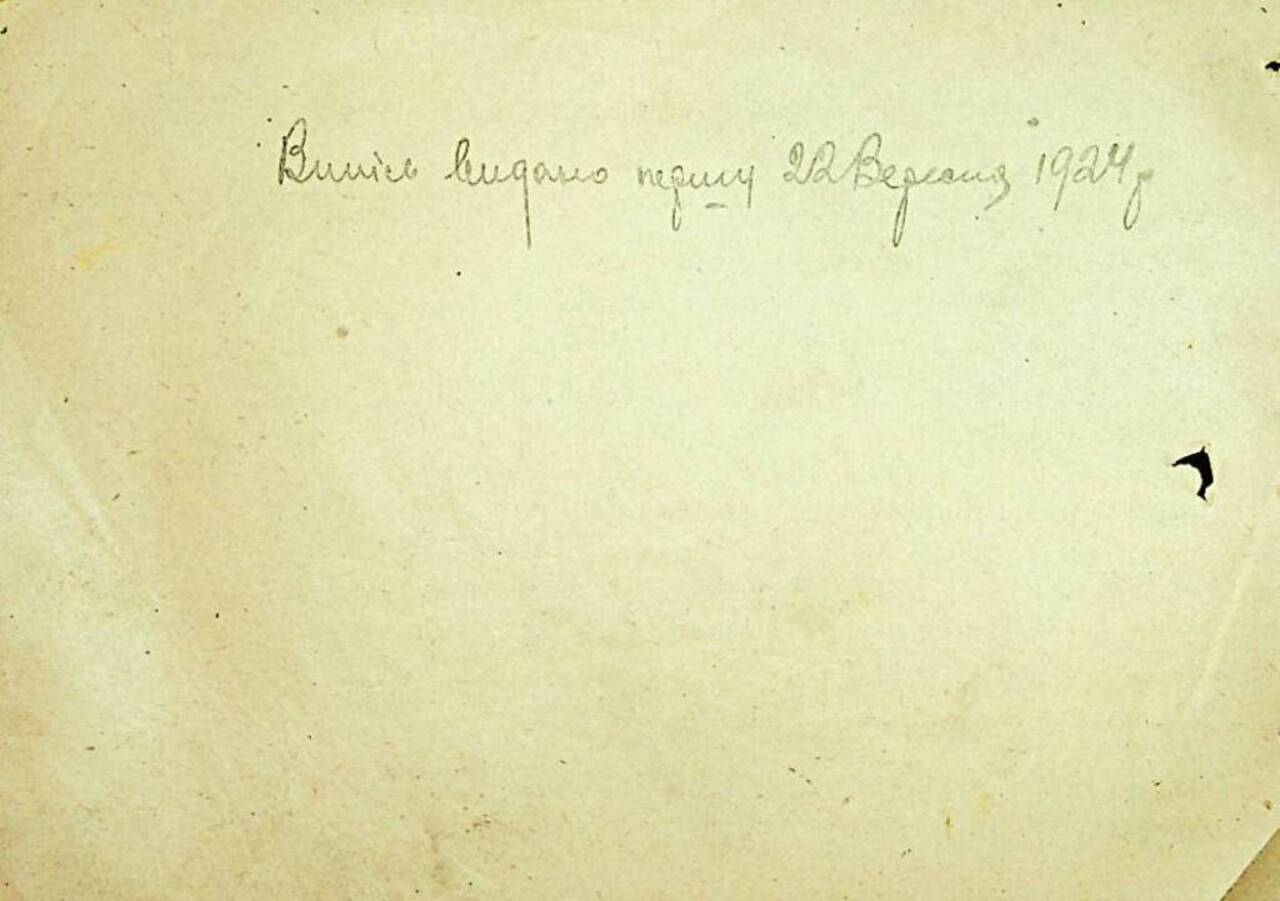 Випісь видано першу 22 Вересня 1924 р